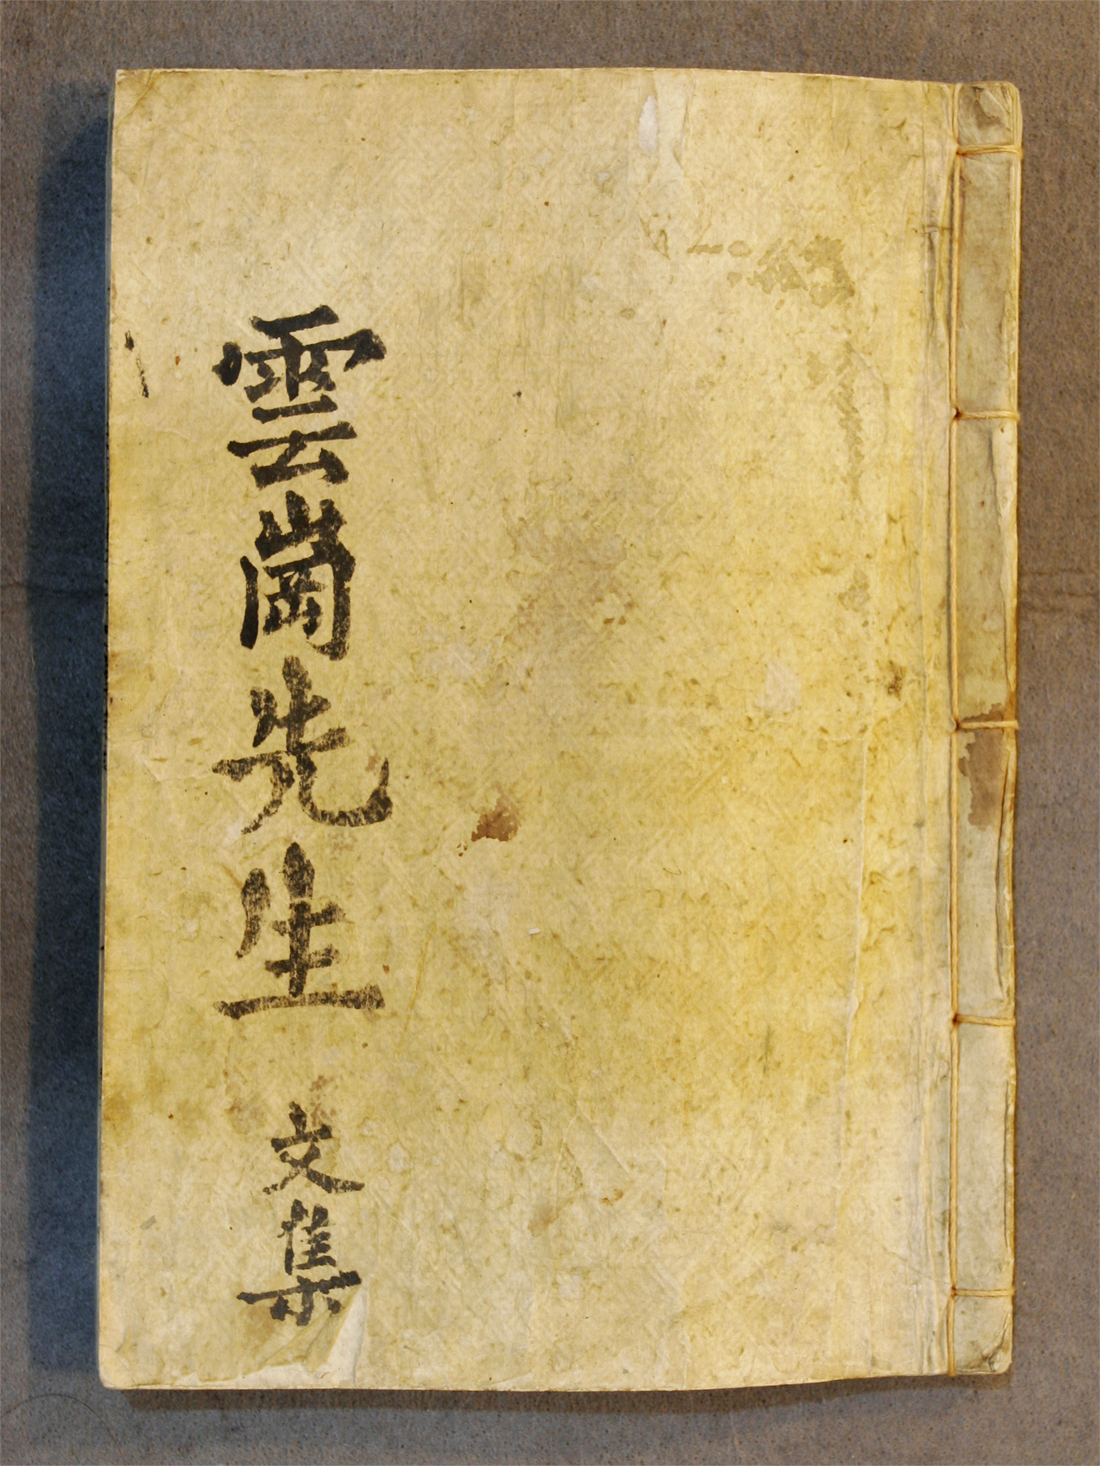 雲崗先生 文集